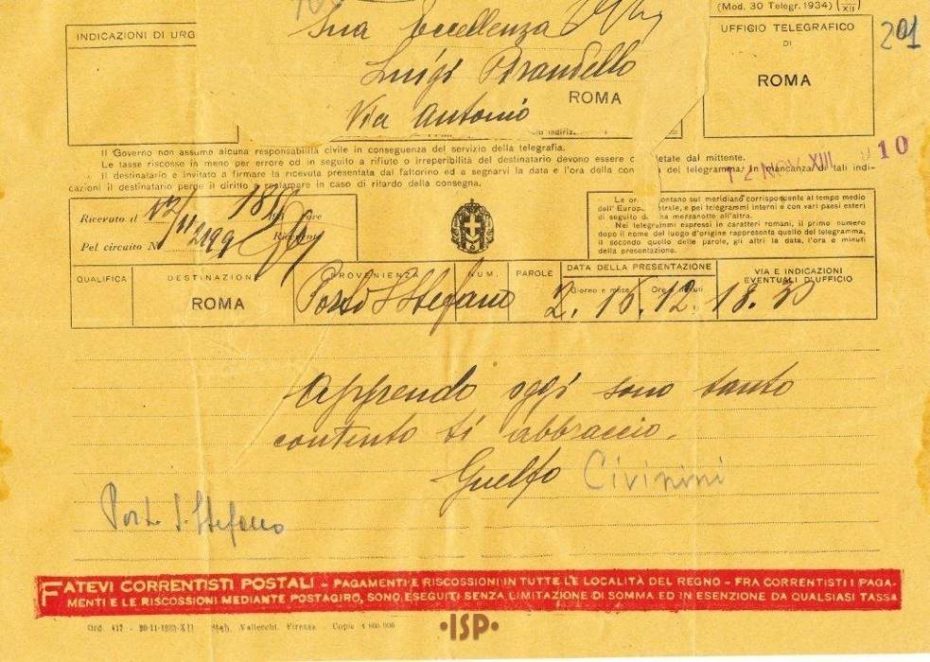 (Mod. 30 Telegr. 1934) (XII)
201
INDICAZIONI DI URG
Sua Eccellenza
Luigi Pirandello
ROMA
Via Antonio
UFFICIO TELEGRAFICO
DI
ROMA
Il Governo non assume alcuna responsabilità civile in conseguenza del servizio della telegrafia.
Le tasse riscosse in meno per errore od in seguito a rifiuto o irreperibilità del destinatario devono essere c etate dal mittente.
Il destinatario è invitato a firmare la ricevuta presentata dal fattorino ed a segnarvi la data e l'ora della con del telegramma. In mancanza di tali indi-
cazioni il destinatario perde il diritto a reclamare in caso di ritardo della consegna.
12 NOV XIII 10
Ricevuto il 12/11 18 ore
Pel circuito N. 2199
Le ore contano sul meridiano corrispondente al tempo medio
dell'Europa centrale, e pei telegrammi interni e con vari paesi esteri
di seguito da una mezzanotte all'altra.
Nei telegrammi espressi in caratteri romani, il primo numero
dopo il nome del luogo d'origine rappresenta quello del telegramma,
il secondo quello delle parole, gli altri la data, l'ora e minuti
della presentazione.
QUALIFICA DESTINAZIONE PROVENIENZA NUM. PAROLE DATA DELLA PRESENTAZIONE VIA E INDICAZIONI
Giorno e mese Ore e minuti EVENTUALI D'UFFICIO
ROMA Porto S Stefano 2. 16. 12. 18.30
Apprendo oggi sono tanto
contento ti abbraccio.
Guelfo Civinini
Porto S. Stefano
FATEVI CORRENTISTI POSTALI - PAGAMENTI E RISCOSSIONI IN TUTTE LE LOCALITÀ DEL REGNO - FRA CORRENTISTI I PAGA-
MENTI E LE RISCOSSIONI MEDIANTE POSTAGIRO, SONO ESEGUITI SENZA LIMITAZIONE DI SOMMA ED IN ESENZIONE DA QUALSIASI TASSA
Ord. 417 - 20-11-1933-XII Stab. Vallecchi. Firenze - Copie
•ISP•